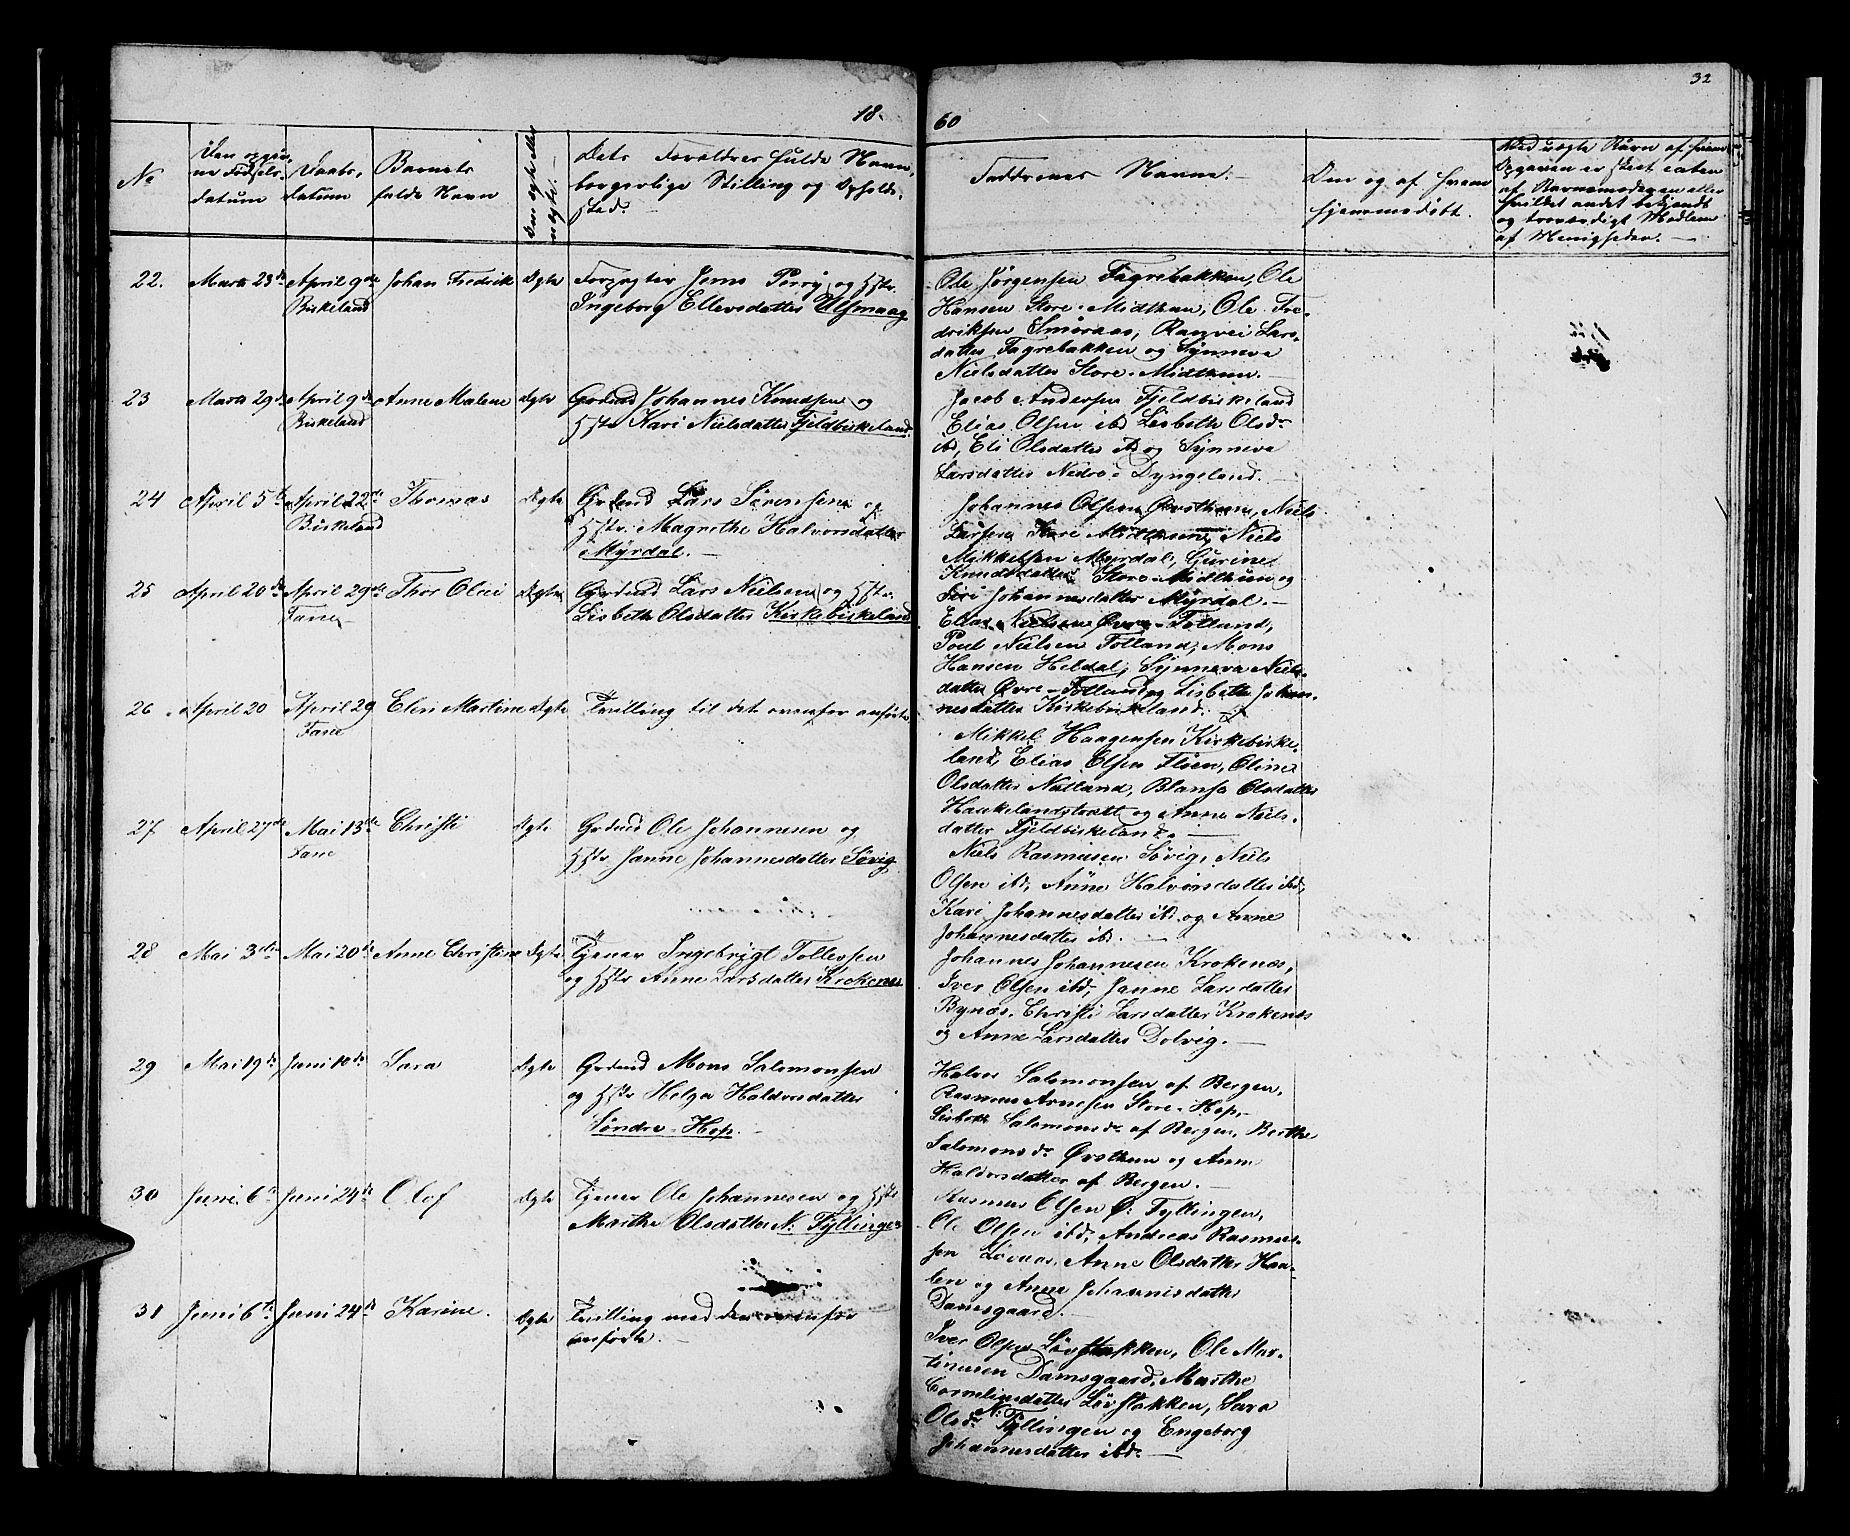 32
18 60
No
Den opgivne Fødselsdatum
Daabsdatum
Barnets fulde Navn
Om ægte eller uægte.
Dets Forældres fulde Navn, borgerlige Stilling og Opholdssted.
Faddernes Navne.
Om og af hvem hjemmedøbt.
Ved uægte Børn af hvem Opgaven er skeet enten af Barnemoderen eller hvilket andet bekjendt og troværdigt Medlem af Menigheden.
22. Marts 23de April 9de Johan Fredrik Ægte Forpagter Jens Perry og Hstr.
Birkeland Ingeborg Ellevsdatter Ulsmaag
Ole Jørgensen Fagrebakken, Ole
Hansen Store-Midthun, Ole Fre-
driksen Smøraas, Ranvei Lars-
datter Fagrebakken og Synneva
Nielsdatter Store-Midthun.
23 Marts 29de April 9de Anne Malene Ægte Grdmd Johannes Knudsen og
Birkeland Hstr Kari Nielsdatter Fjeldbirkeland.
Jacob Andersen Fjeldbirkeland
Elias Olsen ibd Lisbeth Olsdr
ibd, Eli Olsdatter ibd og Synneva
Larsdatter Nedre-Dyngeland.
24 April 5te April 22de Thomas Ægte Grdmd Lars Sørensen og
Birkeland Hstr. Magrethe Halvorsdatter
Myrdal.
Johannes Olsen Øvsthun, Niels
Larsen Store Midthun, Niels
Mikkelsen Myrdal, Gurine
Knudsdatter Store-Midthun og
Siri Johannesdatter Myrdal.
25 April 20de April 29de Thor Olai Ægte Grdmd Lars Nielsen og Hstr.
Fane Lisbeth Olsdatter Kirkebirkeland
Elias Nielsen Øvre-Totland,
Poul Nielsen Totland, Mons
Hansen Heldal, Synneva Niels-
datter Øvre-Totland og Lisbeth Johan-
nesdatter Kirkebirkeland.
26. April 20 April 29 Elen Martine Ægte Tvilling til det ovenfor anførte
Fane
Mikkel Haagensen Kirkebirke-
land, Elias Olsen Fløen, Oline
Olsdatter Natland, Blansa Olsdatter
Haukelandstræt og Anne Niels-
datter Fjeldbirkeland.
27 April 27de Mai 13de Christi Ægte Grdmd Ole Johannesen og
Fane Hstr Janne Johannesdatter Søvig
Niels Rasmusen Søvig, Niels
Olsen ibd, Anne Halvorsdatter ibd,
Kari Johannesdatter ibd og Anne
Johannesdatter ibd.
28 Mai 3die Mai 20de Anne Christine Ægte Tjener Ingebrigt Tollevsen
og Hstr Anne Larsdatter Krokenes
Johannes Johannesen Krokenæs,
Iver Olsen ibd, Janne Larsdatter
Bynæs, Christi Larsdatter Krokenæs
og Anne Larsdatter Dolvig.
29 Mai 19de Juni 10de Sara Ægte Grdmd Mons Salomonsen
og Hstr Helga Haldorsdatter
Søndre-Hop.
Halvor Salomonsen af Bergen,
Rasmus Arnesen Store-Hop,
Lisbeth Salomonsdr af Bergen, Berthe
Salomonsdr Øvsthun og Anne
Haldorsdatter af Bergen.
30 Juni 6te Juni 24de Olof Ægte Tjener Ole Johannesen og Hstr
Marthe Olsdatter N: Fyllingen
Rasmus Olsen Ø: Fyllingen,
Ole Olsen ibd, Andreas Rasmus-
sen Løvaas, Anne Olsdatter Haa-
len og Anne Johannesdatter
Damsgaard.
31 Juni 6te Juni 24de Karine. Ægte Tvilling med den ovenfor
anførte.
Iver Olsen Løvstakken, Ole Mar-
tinusen Damsgaard, Marthe
Corneliusdatter Løvstakken, Sara
Olsdr N: Fyllingen og Engeborg
Johannesdatter ibd.